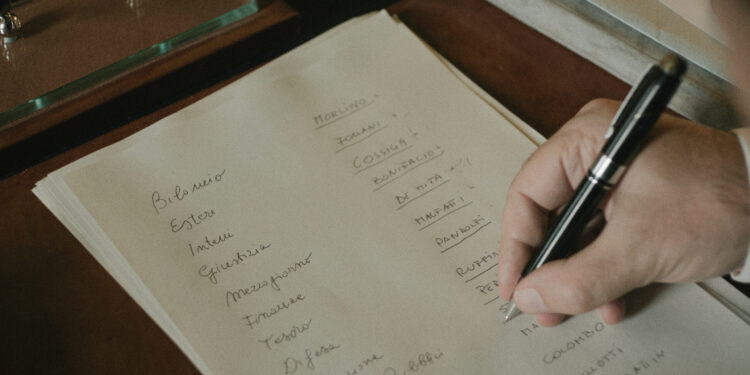 Bilancio
Esteri
Interni
Giustizia
Mezzogiorno
Finanze
Tesoro
Difesa
MORLINO
FORLANI
COSSIGA
BONIFACIO
DE MITA
MALFATTI
PANDOLFI
RUFFINI
COLOMBO